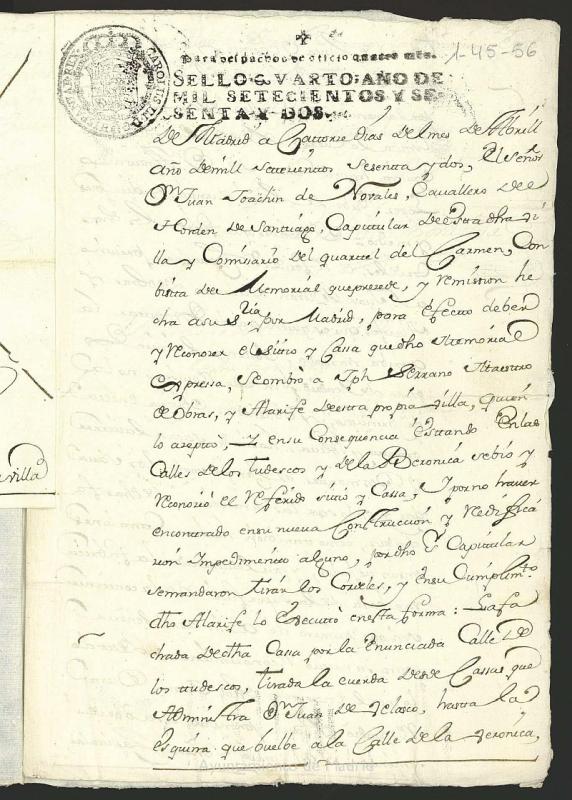 1-45-56
Para despachos de oficio quatro mrs.
SELLO QVARTO, AÑO DE
MIL SETECIENTOS Y SE-
SENTA Y DOS.
En Madrid a Cattorze dias del mes de Abrill
año de mill settecientos sesentta y dos, el señor
Dn. Juan Joachin de Novales, Cavallero del
Horden de Santtiago, Capitular de Estta dha vi
lla y Comisario del quartel del Carmen, Con
bistta del Memorial que prezede, y remission he
cha a su sria. por Madrid, para efecto de ber
y reconozer el sitio y Cassa que dho Memorial
Expressa, Nombró a Jph Serrano Maestro
de Obras, y Alarife de estta propia villa, quien
lo azeptó, y en su Consequencia estando en las
Calles de los tudescos y de la Beronica se bió y
reconozió el referido sitio y Cassa, y por no haver
encontrado en su nueva Construcción y Redifica
zion Impedimento alguno, por dho Sr. Capitular
se mandaron tirar los Cordeles, y en su Cumplimto.
dho Alarife lo Executtó en esta forma: La fa
chada de dha Cassa por la enunciada Calle de
los tudescos, tirada la cuerda desde Cassas que
Administra Dn. Juan de Velasco, hastta la
esquina que buelbe a la Calle de la Veronica,
villa
Ayuntamiento de Madrid